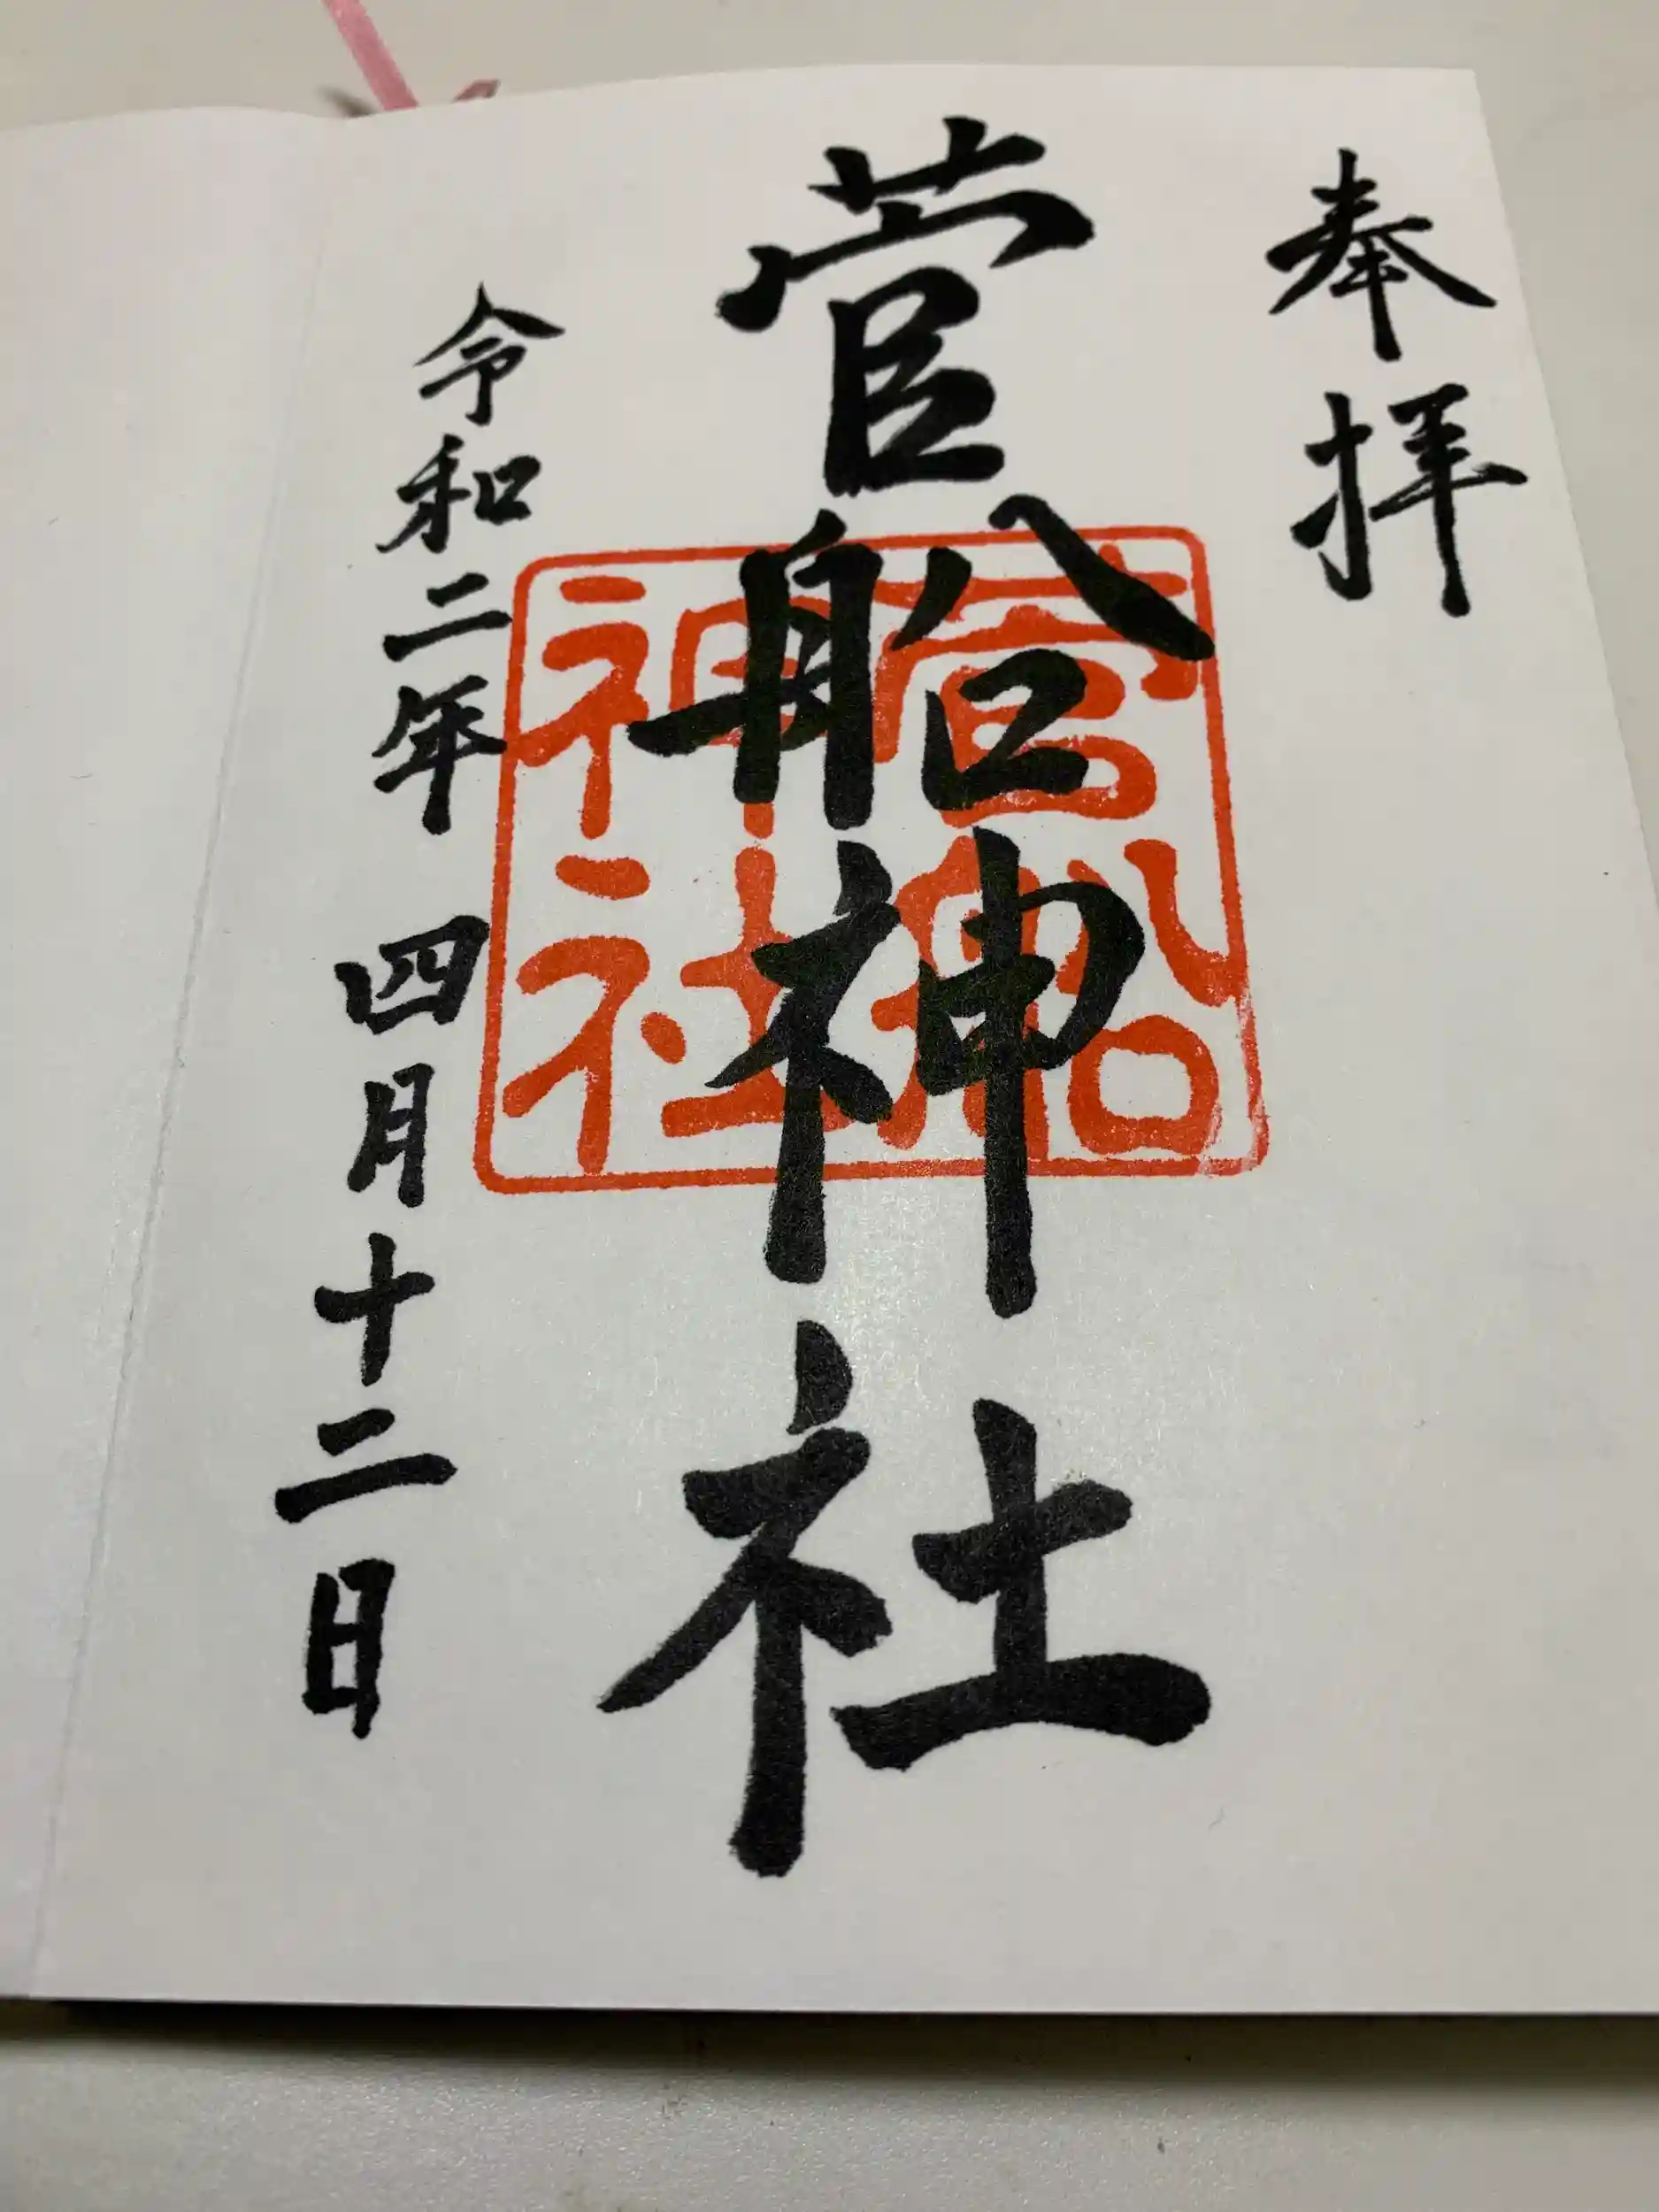 奉拝
菅船神社
令和二年 四月十二日
菅船
神社